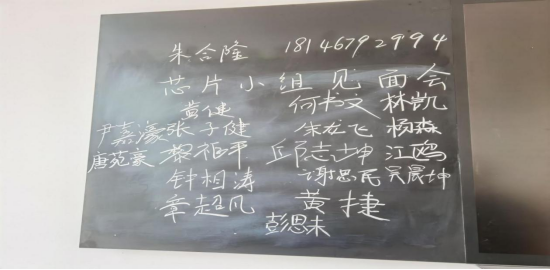 朱合隆 18146792994
芯片小组见面会
黄健 何书文 林凯
尹嘉濠 张子健 朱龙飞 杨淼
唐苑豪 黎祖平 邱志坤 江鸥
钟相涛 谢思民 吴晨坤
章超凡 黄捷
彭思未